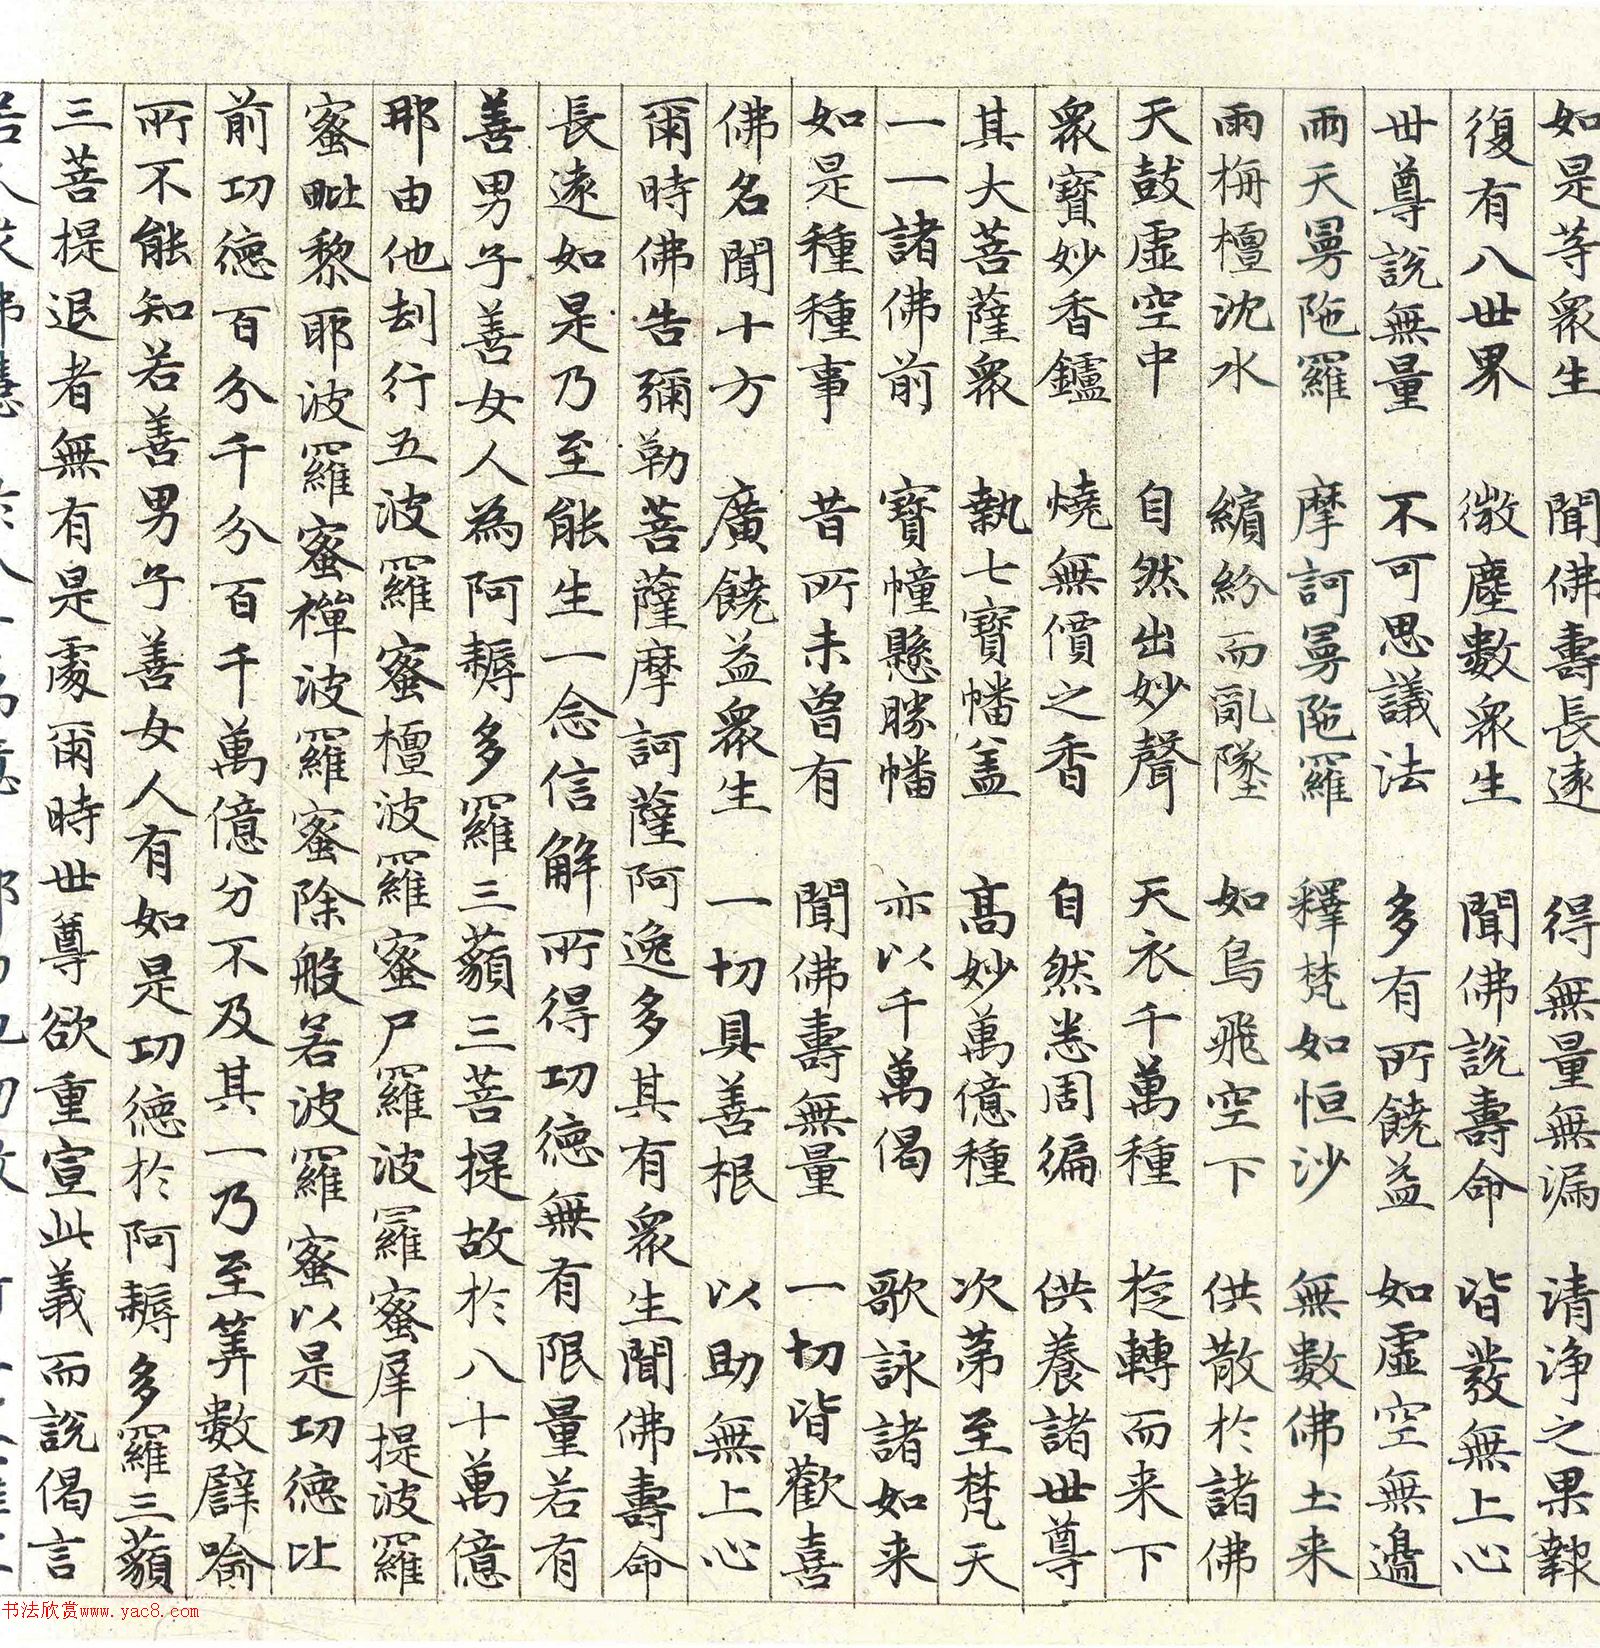 如是等眾生 聞佛壽長遠 得無量無漏 清淨之果報
復有八世界 微塵數眾生 聞佛說壽命 皆發無上心
世尊說無量 不可思議法 多有所饒益 如虛空無邊
雨天曼陁羅 摩訶曼陁羅 釋梵如恒沙 無數佛土来
雨栴檀沈水 繽紛而亂墜 如鳥飛空下 供散於諸佛
天鼓虛空中 自然出妙聲 天衣千萬種 旋轉而来下
眾寶妙香鑪 燒無價之香 自然悉周遍 供養諸世尊
其大菩薩眾 執七寶幡盖 高妙萬億種 次第至梵天
一一諸佛前 寶幢懸勝幡 亦以千萬偈 歌詠諸如来
如是種種事 昔所未曾有 聞佛壽無量 一切皆歡喜
佛名聞十方 廣饒益眾生 一切具善根 以助無上心
爾時佛告彌勒菩薩摩訶薩阿逸多其有眾生聞佛壽命
長遠如是乃至能生一念信解所得功德無有限量若有
善男子善女人為阿耨多羅三藐三菩提故於八十萬億
那由他劫行五波羅蜜檀波羅蜜尸羅波羅蜜羼提波羅
蜜毗黎耶波羅蜜禪波羅蜜除般若波羅蜜以是功德比
前功德百分千分百千萬億分不及其一乃至筭數譬喻
所不能知若善男子善女人有如是功德於阿耨多羅三藐
三菩提退者無有是處爾時世尊欲重宣此義而說偈言
书法欣赏www.yac8.com